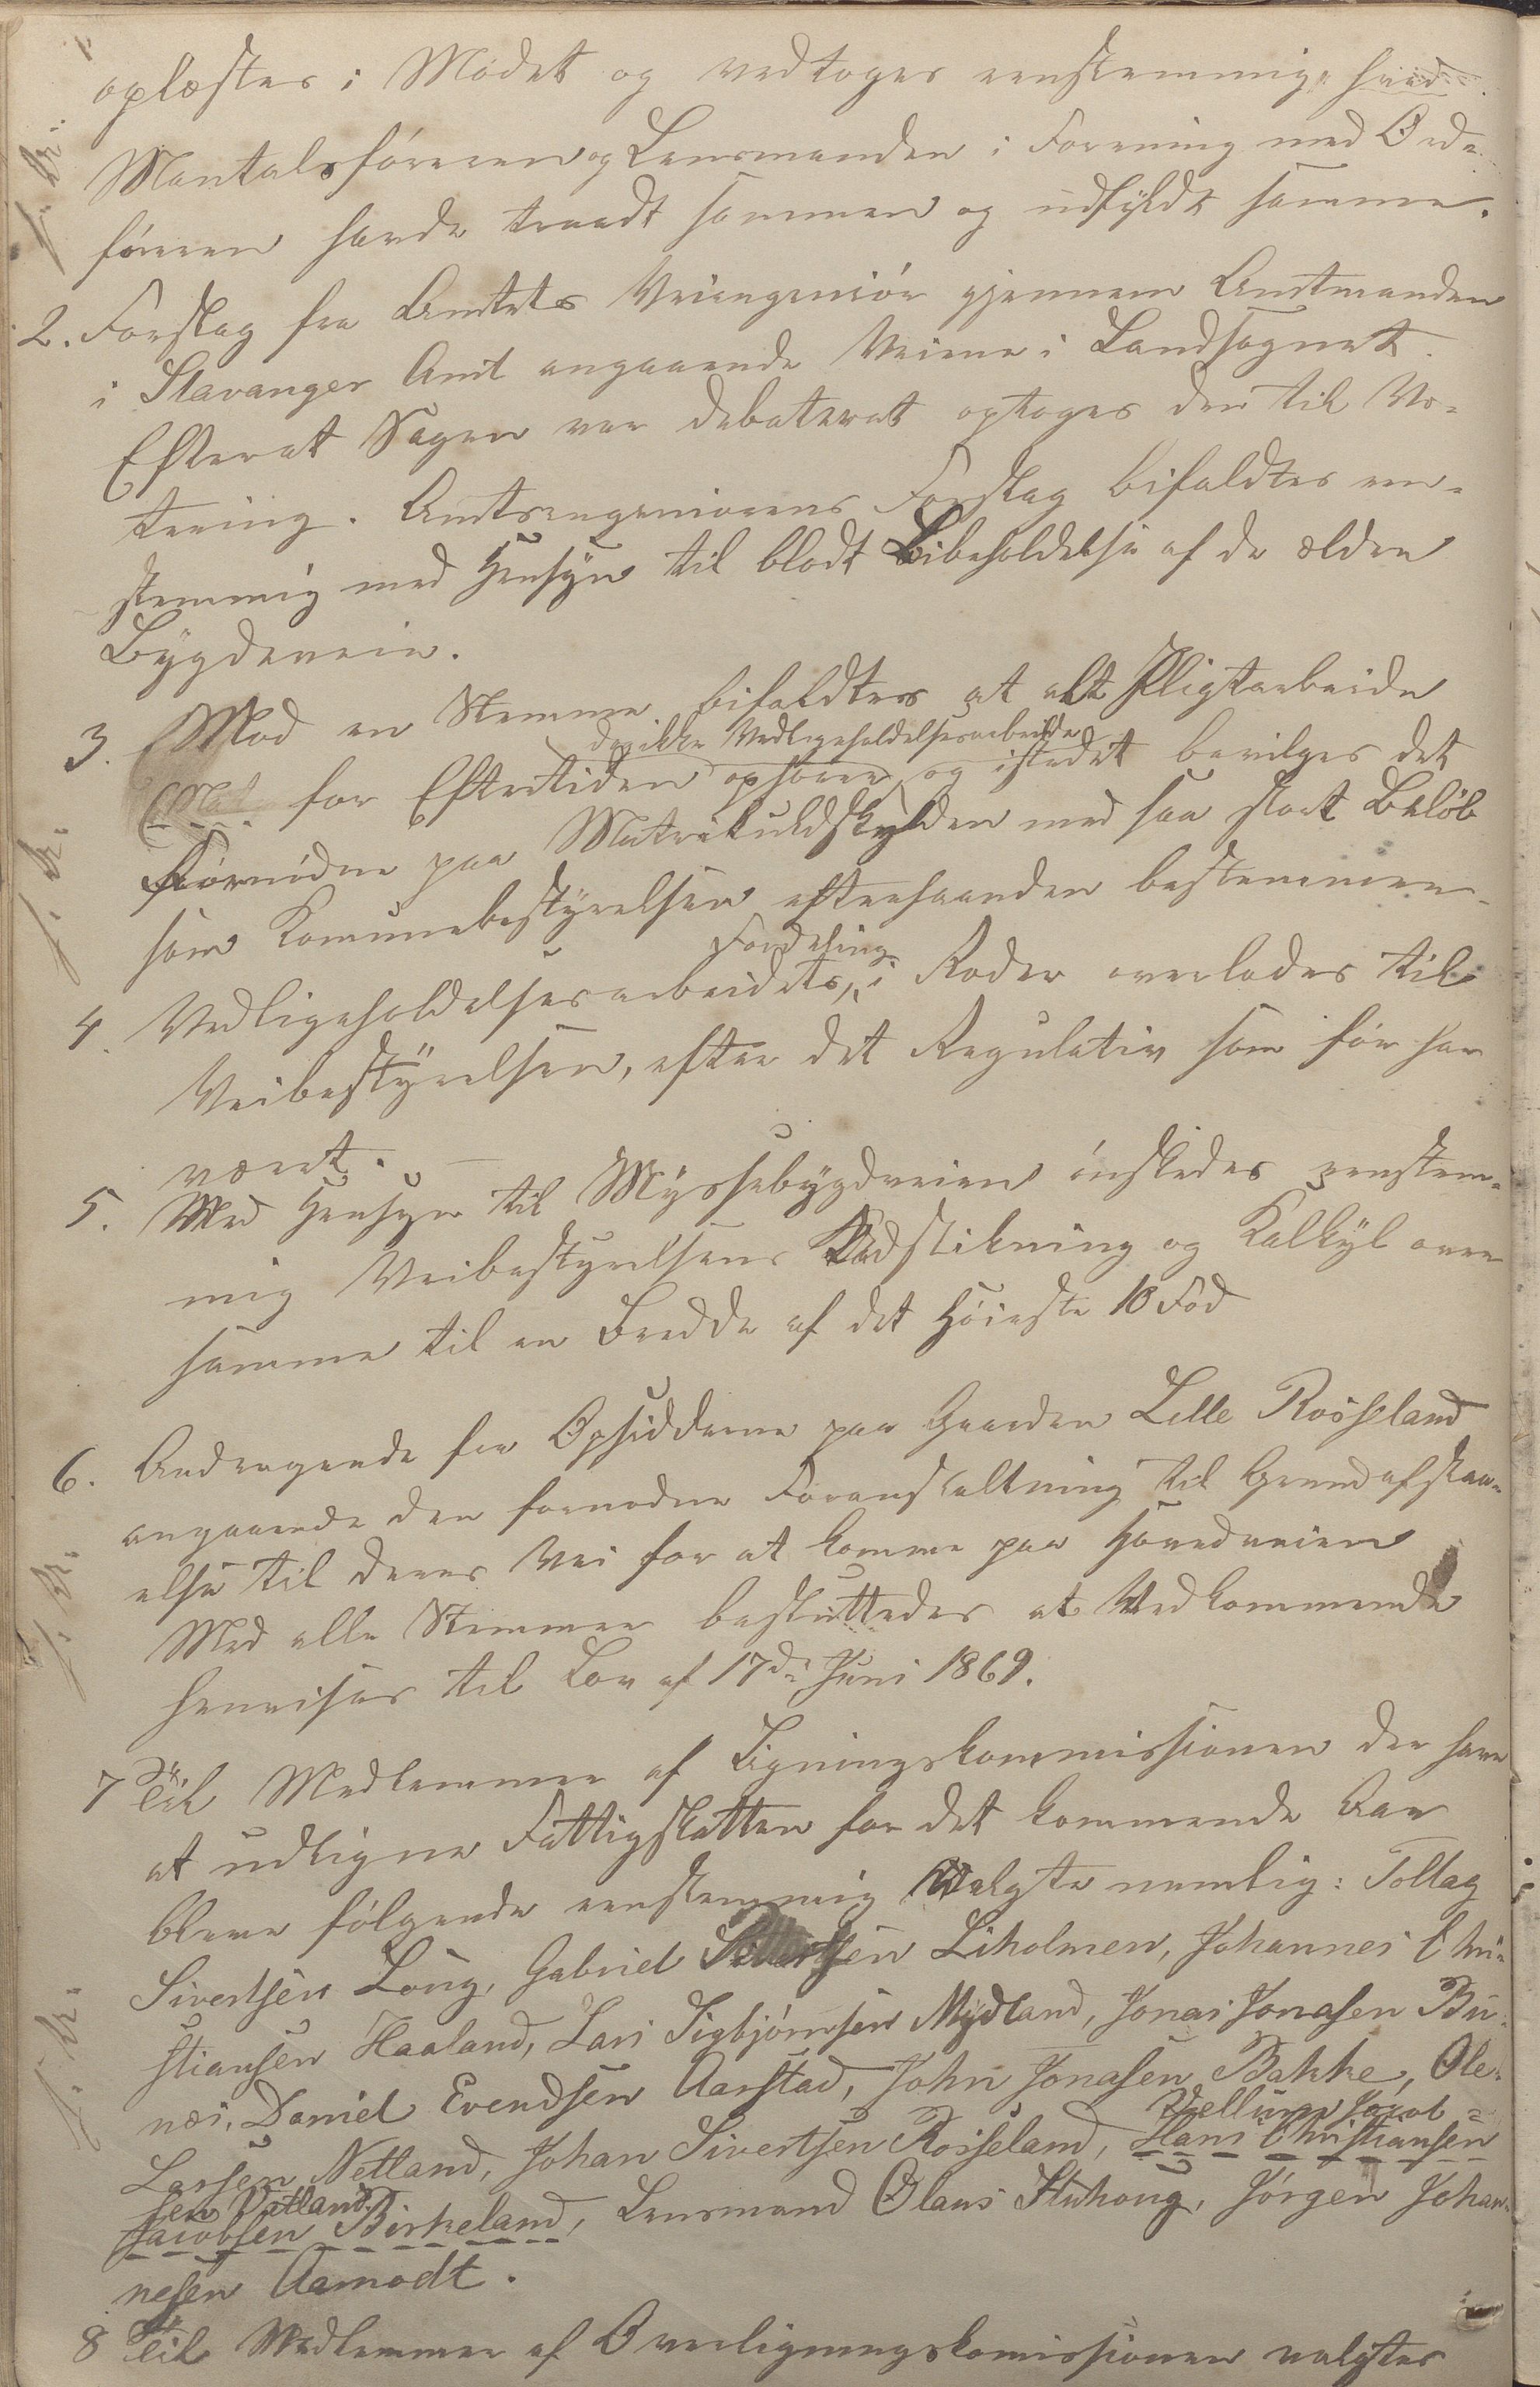 oplæstes i Mødet og vedtoges eenstemmig hvad
Mantalsføreren og Lensmanden i Forening med Ord-
føreren havde traadt sammen og udfyldt samme.
2. Forslag fra Amtets Veiingeniør gjennem Amtmanden
i Stavanger Amt angaaende Veiene i Landsognet.
Efterat Sagen var debateret optoges den til Vo-
tering. Amtsingeniørens Forslag bifaldtes een-
stemmig med Hensyn til blodt Bibeholdelse af de ældre
Bygdeveie.
3. Mod en Stemme bifaldtes at alt Pligtarbeide
der ikke Vedligeholdelsesarbeide
for Eftertiden ophører og istedet bevilges det
Fornødne paa Matrikulskylden med saa stort Beløb
som Komunebestyrelsen efterhaanden bestemmer.
Fordeling
4. Vedligeholdelsesarbeidets, i Roder overlades til
Veibestyrelsen, efter det Regulativ som før har
været.
5. Med Hensyn til Myssebygdveien ønskedes eenstem-
mig Veibestyrelsens Udstikning og Kalkyl over
samme til en Bredde af det Høieste 10 Fod
6. Andragende fra Opsidderne paa Gaarden Lille Rosseland
angaaende den fornødne Foranstaltning til Grundafstaa-
else til deres Vei for at komme paa Hovedveien
Med alle Stemmer besluttedes at Vedkommende
henvises til Lov af 17de Juni 1869.
7 Til Medlemmer af Ligningskommissionen der have
at udligne Fattigskatten for det kommende Aar
bleve følgende eenstemmig Valgte nemlig: Tollag
Sivertsen Loug, Gabriel Sivertsen Liholmen, Johannes Chri-
stiansen Haaland, Lars Sigbjørnsen Mydland, Jonas Jonasen Bu-
næs, Daniel Evendsen Aarstad, John Jonasen Bakke, Ole
Vellum Jacob-
Larsen Netland, Johan Sivertsen Rosseland, Hans Christiansen
sen Vatland
Jacobsen Birkeland, Lensmand Olaus Stuhaug, Jörgen Johan-
nesen Aamodt.
8 Til Medlemmer af Overligningskomissionen valgtes
f. Kr.
f. Kr.
f. Kr.
f. Kr.